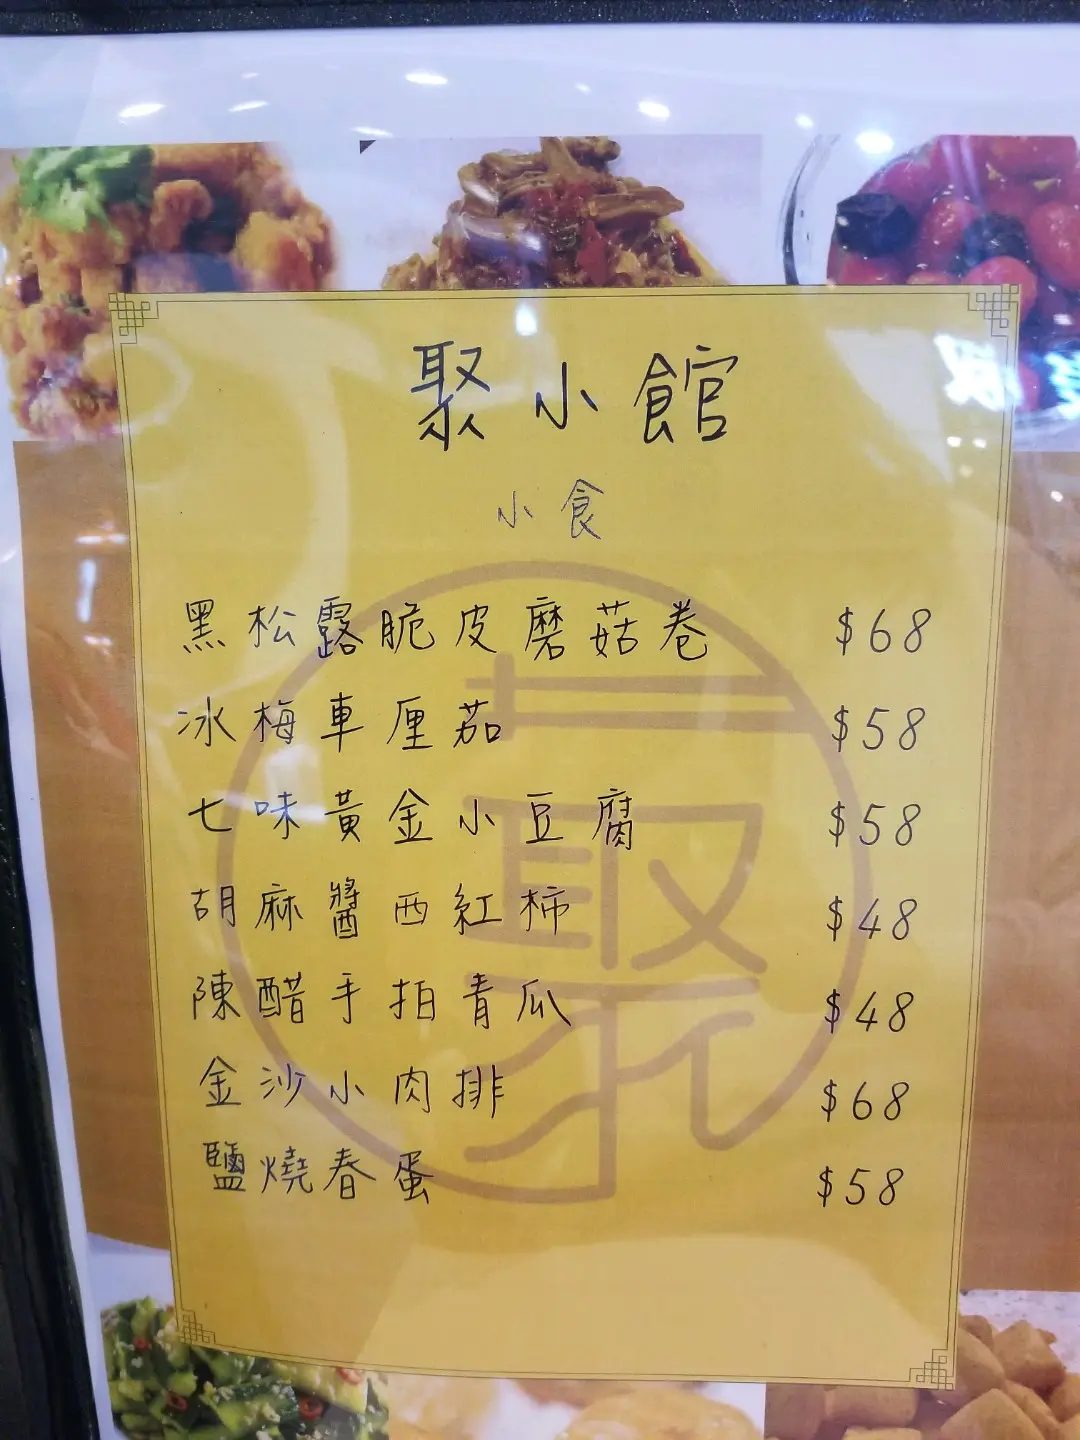 聚小館
小食
黑松露脆皮磨菇卷 $68
冰梅車厘茄 $58
七味黃金小豆腐 $58
胡麻醬西紅柿 $48
陳醋手拍青瓜 $48
金沙小肉排 $68
鹽燒春蛋 $58
聚